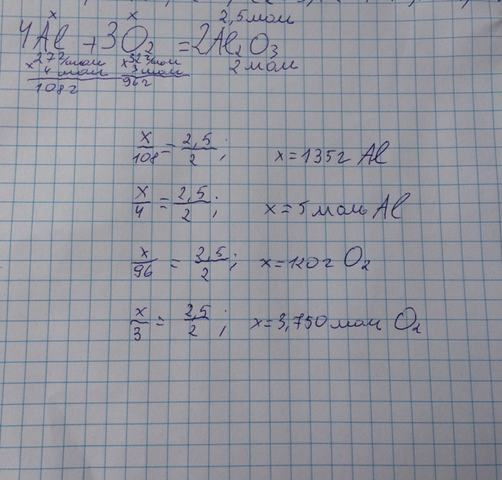 x x 2,5 мол
4Al + 3O₂ = 2Al₂O₃
27 г/мол 32 г/мол 2 мол
x 4 мол x 3 мол
108 г 96 г
x/108 = 2,5/2 ; x = 135 г Al
x/4 = 2,5/2 ; x = 5 моль Al
x/96 = 2,5/2 ; x = 120 г O₂
x/3 = 2,5/2 ; x = 3,750 мол O₂